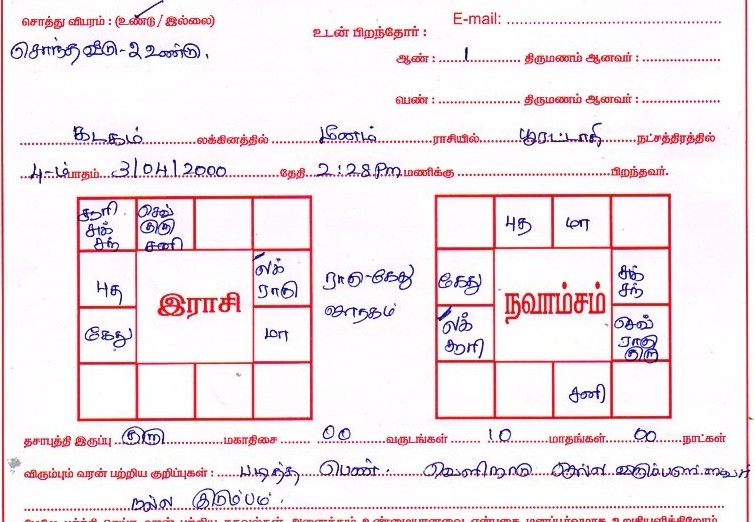 சொத்து விபரம் : (உண்டு / இல்லை)
E-mail:
சொந்த வீடு - 2 உண்டு.
உடன் பிறந்தோர் :
ஆண் : 1 திருமணம் ஆனவர் :
பெண் : திருமணம் ஆனவர் :
கடகம் லக்கினத்தில் மீனம் ராசியில் பூரட்டாதி நட்சத்திரத்தில்
4-ம் பாதம் 3/04/2000 தேதி 2:28 Pm மணிக்கு பிறந்தவர்.
சூரி சுக் சந்
செவ் குரு சனி
புத
லக் ராகு
கேது
மா
இராசி
ராகு-கேது
ஜாதகம்
புத
மா
கேது
சுக் சந்
லக் சூரி
செவ் ராகு குரு
சனி
நவாம்சம்
தசாபுத்தி இருப்பு குரு மகாதிசை 00 வருடங்கள் 10 மாதங்கள் 00 நாட்கள்
விரும்பும் வரன் பற்றிய குறிப்புகள் : படித்த பெண். வெளிநாடு செல்ல
நல்ல குடும்பம்.